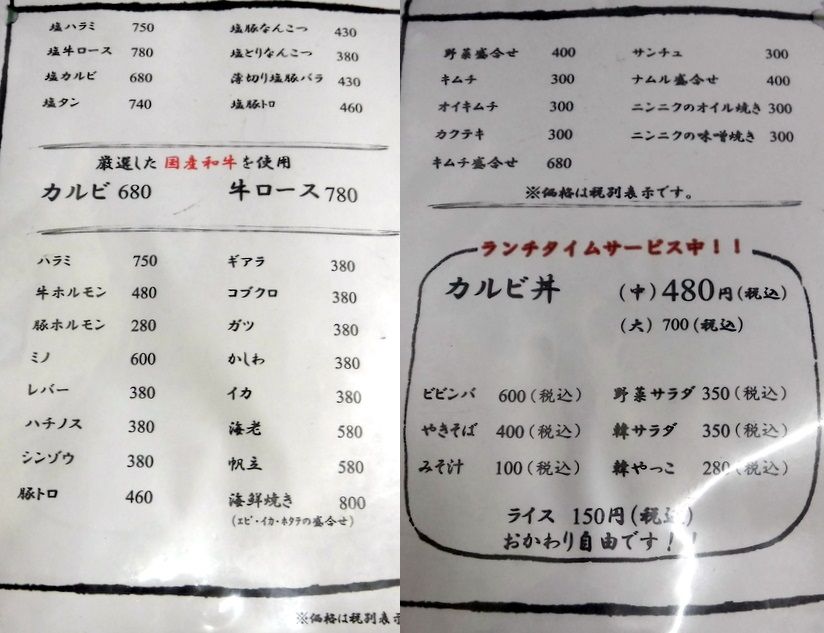 塩ハラミ 750 塩豚なんこつ 430
塩牛ロース 780 塩とりなんこつ 380
塩カルビ 680 薄切り塩豚バラ 430
塩タン 740 塩豚トロ 460
厳選した国産和牛を使用
カルビ 680 牛ロース 780
ハラミ 750 ギアラ 380
牛ホルモン 480 コブクロ 380
豚ホルモン 280 ガツ 380
ミノ 600 かしわ 380
レバー 380 イカ 380
ハチノス 380 海老 580
シンゾウ 380 帆立 580
豚トロ 460 海鮮焼き 800
(エビ・イカ・ホタテの盛合せ)
※価格は税別表示
野菜盛合せ 400 サンチュ 300
キムチ 300 ナムル盛合せ 400
オイキムチ 300 ニンニクのオイル焼き 300
カクテキ 300 ニンニクの味噌焼き 300
キムチ盛合せ 680
※価格は税別表示です。
ランチタイムサービス中！！
カルビ丼 (中) 480円(税込)
(大) 700(税込)
ビビンバ 600(税込) 野菜サラダ 350(税込)
やきそば 400(税込) 韓サラダ 350(税込)
みそ汁 100(税込) 韓やっこ 280(税込)
ライス 150円(税込)
おかわり自由です！！